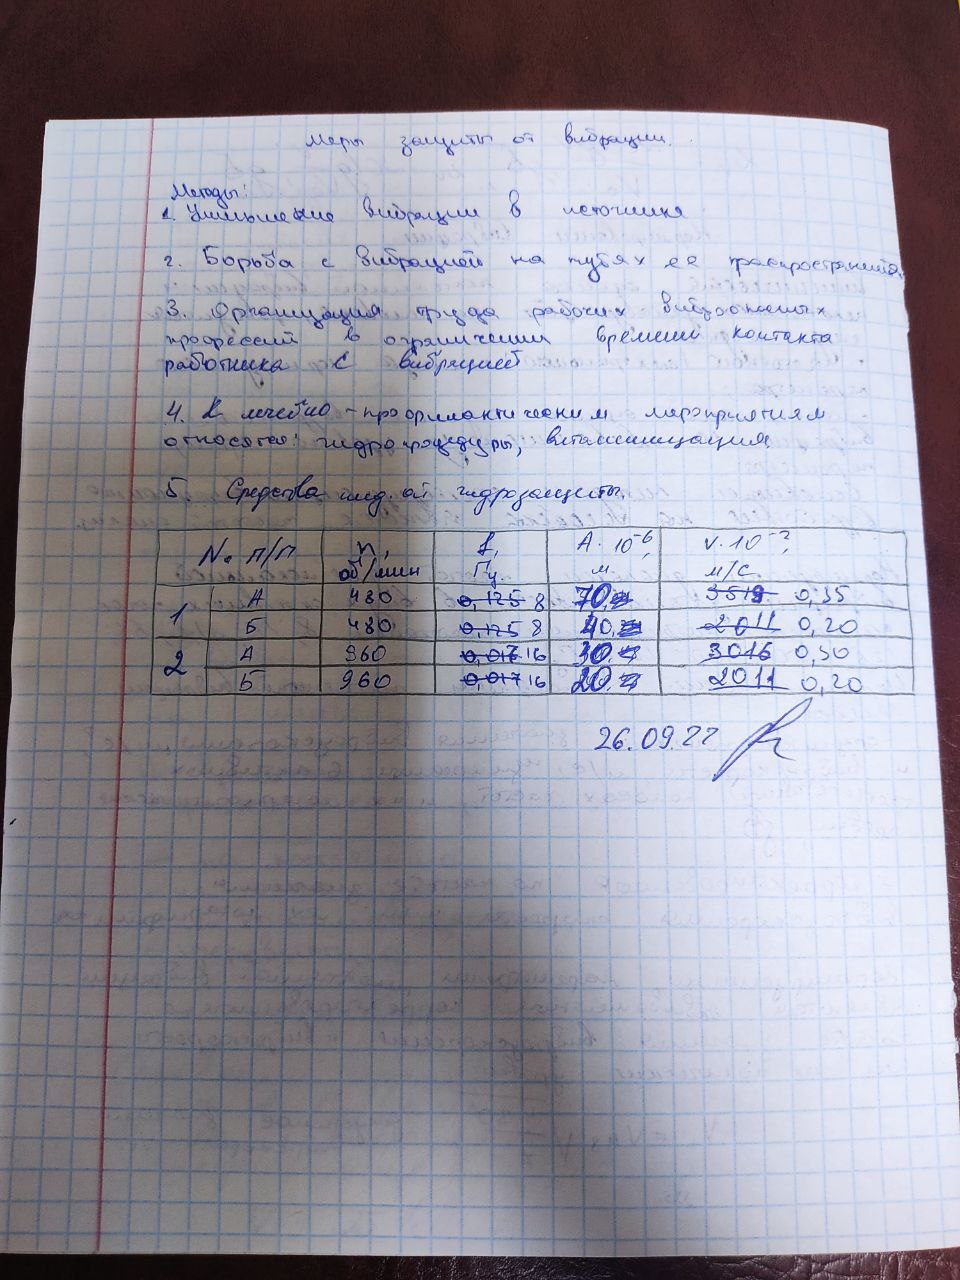 Меры защиты от вибрации.
Методы:
1. Уменьшение вибрации в источнике
2. Борьба с вибрацией на путях ее распространения.
3. Организация труда рабочих виброопасных
профессий в ограничении времени контакта
работника с вибрацией
4. К лечебно-профилактическим мероприятиям
относятся: гидропроцедуры, витаминизация
5. Средства инд. от гидрозащиты.
№ п/п n, об/мин f, Гц A·10⁻⁶, м V·10⁻², м/с
1 А 480 0,125 8 70 3519 0,35
Б 480 0,125 8 40 2011 0,20
2 А 960 0,016 16 30 3016 0,30
Б 960 0,017 16 20 2011 0,20
26.09.22